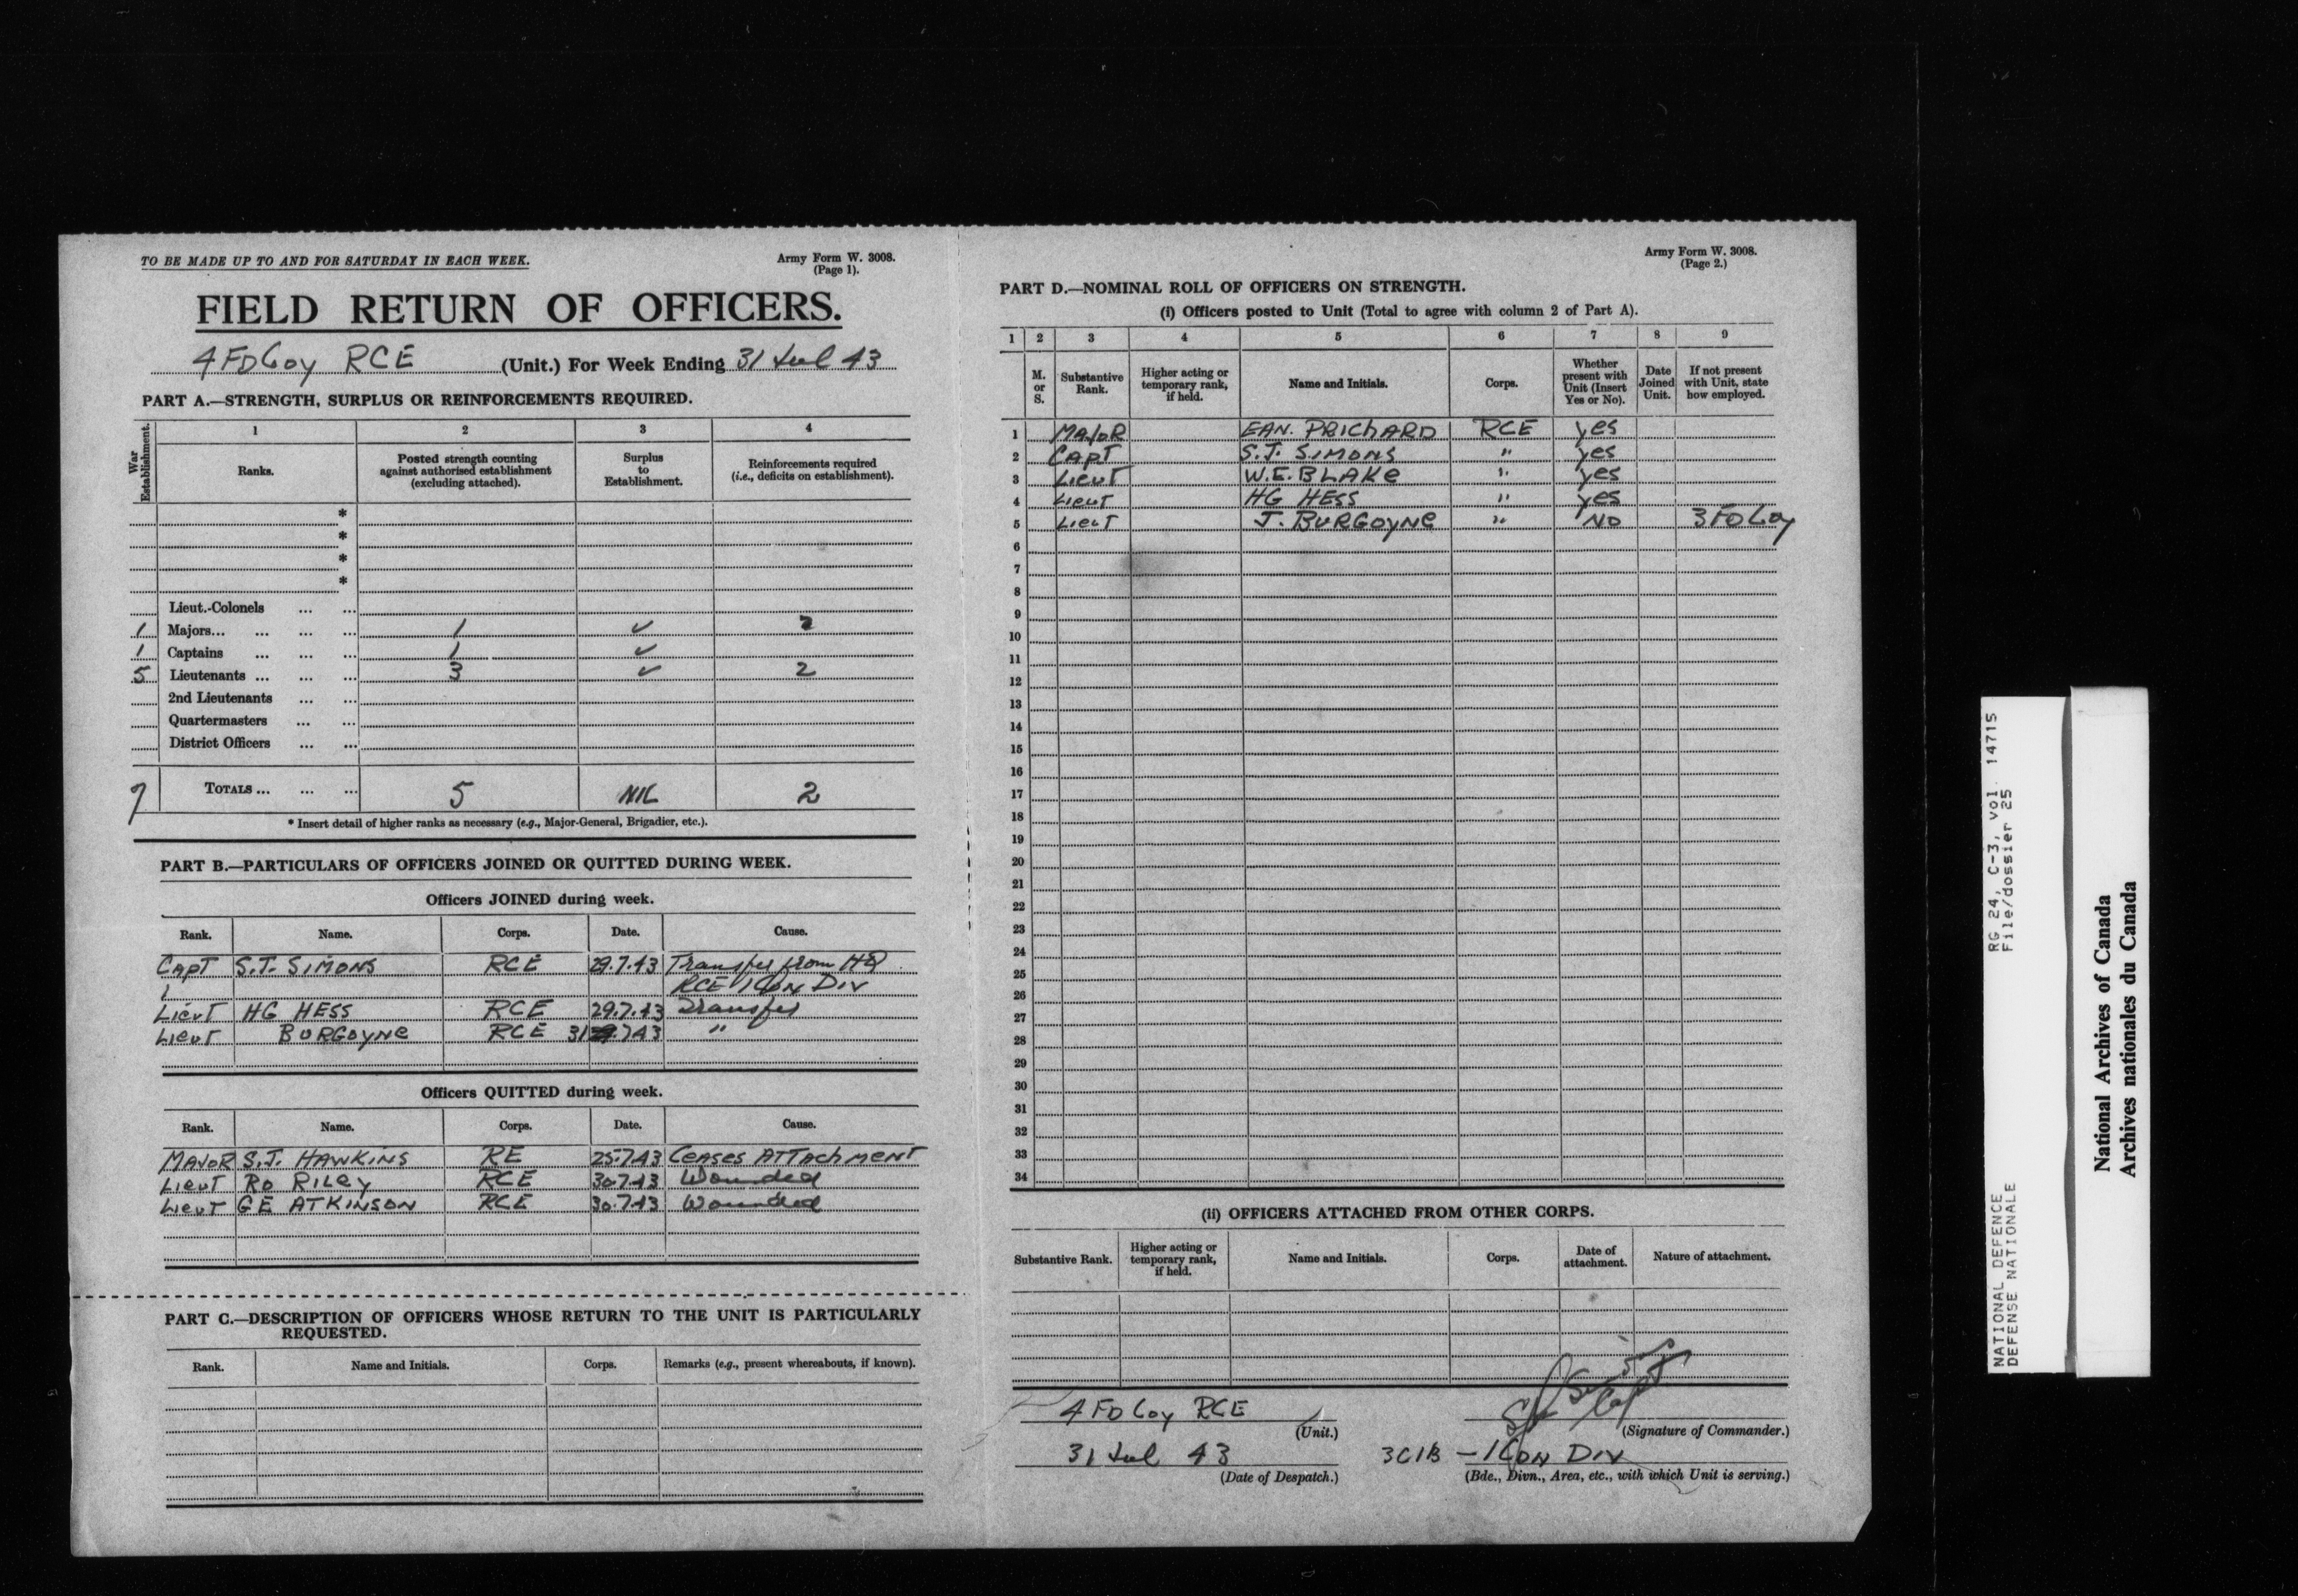 TO BE MADE UP TO AND FOR SATURDAY IN EACH WEEK.
Army Form W. 3008.
(Page 1).
FIELD RETURN OF OFFICERS.
4 FD Coy RCE (Unit.) For Week Ending 31 Jul 43
PART A.—STRENGTH, SURPLUS OR REINFORCEMENTS REQUIRED.
War Establishment.
1 2 3 4
Ranks.
Posted strength counting against authorised establishment (excluding attached).
Surplus to Establishment.
Reinforcements required (i.e., deficits on establishment).
*
*
*
*
Lieut.-Colonels ... ...
1 Majors... ... ... ... 1 ✓
1 Captains ... ... ... 1 ✓
5 Lieutenants ... ... ... 3 ✓ 2
2nd Lieutenants ... ...
Quartermasters ... ...
District Officers ... ...
7 TOTALS ... ... ... 5 NIL 2
* Insert detail of higher ranks as necessary (e.g., Major-General, Brigadier, etc.).
PART B.—PARTICULARS OF OFFICERS JOINED OR QUITTED DURING WEEK.
Officers JOINED during week.
Rank. Name. Corps. Date. Cause.
CAPT S.J. SIMONS RCE 29.7.43 Transfer from HQ
RCE 1 CDN DIV
Lieut HG HESS RCE 29.7.43 Transfer
Lieut BURGOYNE RCE 31.7.43 "
Officers QUITTED during week.
Rank. Name. Corps. Date. Cause.
MAJOR S.J. HAWKINS RE 25.7.43 CEASES ATTACHMENT
Lieut RO RILEY RCE 30.7.43 Wounded
Lieut GE ATKINSON RCE 30.7.43 Wounded
PART C.—DESCRIPTION OF OFFICERS WHOSE RETURN TO THE UNIT IS PARTICULARLY
REQUESTED.
Rank. Name and Initials. Corps. Remarks (e.g., present whereabouts, if known).
Army Form W. 3008.
(Page 2.)
PART D.—NOMINAL ROLL OF OFFICERS ON STRENGTH.
(i) Officers posted to Unit (Total to agree with column 2 of Part A).
1 2 3 4 5 6 7 8 9
M. or S.
Substantive Rank.
Higher acting or temporary rank, if held.
Name and Initials.
Corps.
Whether present with Unit (Insert Yes or No).
Date Joined Unit.
If not present with Unit, state how employed.
1 MAJOR EAN. PRICHARD RCE yes
2 CAPT S.J. SIMONS " yes
3 Lieut W.E. BLAKE " yes
4 Lieut HG HESS " yes
5 Lieut J. BURGOYNE " NO 3 FD Coy
6
7
8
9
10
11
12
13
14
15
16
17
18
19
20
21
22
23
24
25
26
27
28
29
30
31
32
33
34
(ii) OFFICERS ATTACHED FROM OTHER CORPS.
Substantive Rank.
Higher acting or temporary rank, if held.
Name and Initials.
Corps.
Date of attachment.
Nature of attachment.
4 FD Coy RCE
(Unit.)
(Signature of Commander.)
31 Jul 43
(Date of Despatch.)
3CIB - 1 CDN DIV
(Bde., Divn., Area, etc., with which Unit is serving.)
NATIONAL DEFENCE RG 24, C-3, vol. 14715
DEFENSE NATIONALE File/dossier 25
National Archives of Canada
Archives nationales du Canada